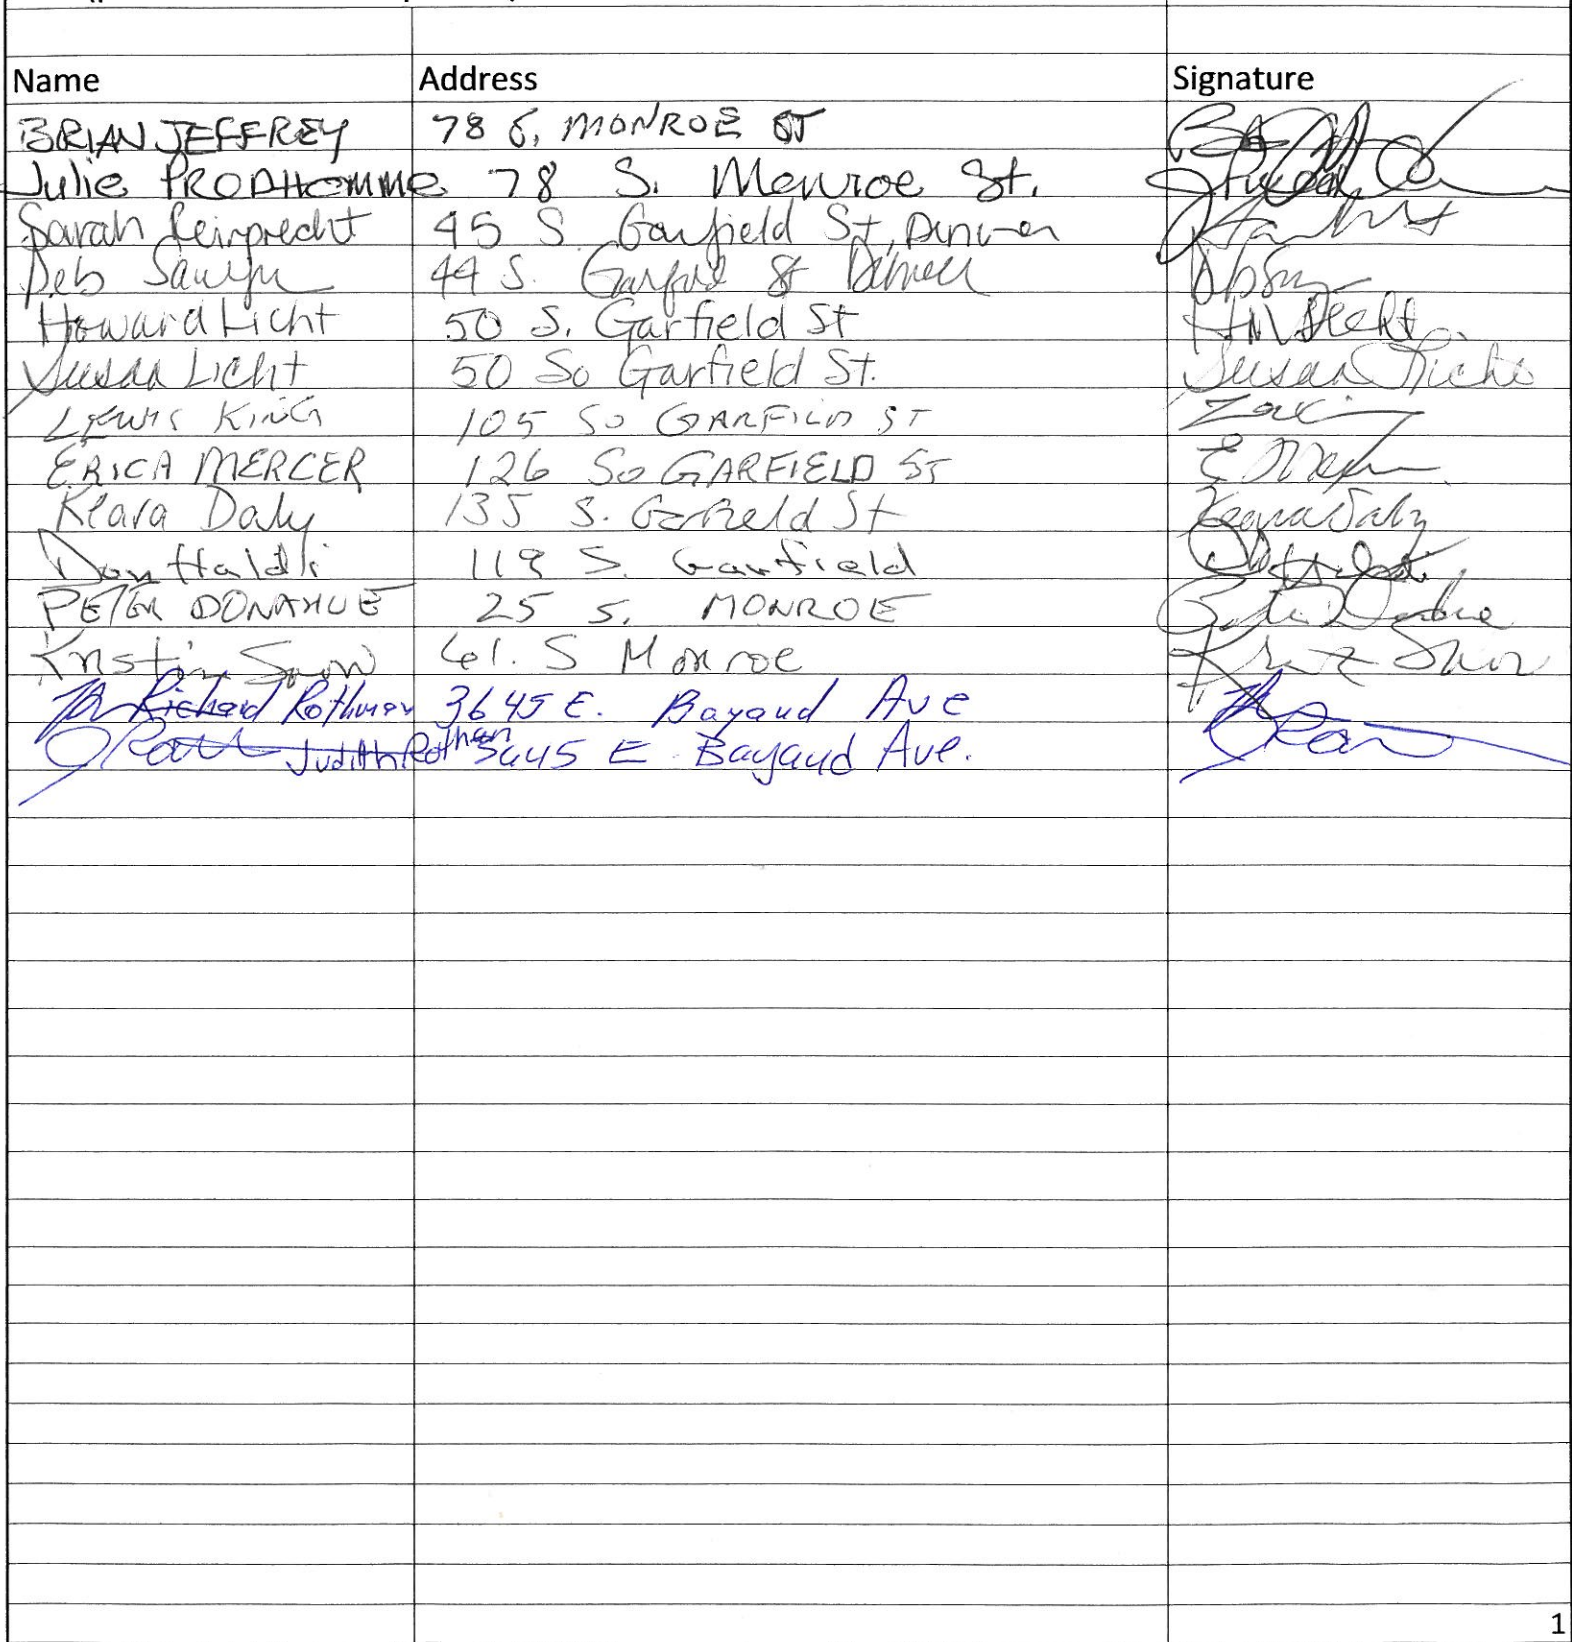 Name Address Signature
BRIAN JEFFREY 78 S. MONROE ST
Julie PRODHOMME 78 S. Monroe St.
Sarah Reinprecht 45 S. Garfield St, Denver
Deb Sawyer 44 S. Garfield St Denver
Howard Licht 50 S. Garfield St
Susan Licht 50 So Garfield St. Susan Licht
Lewis KING 105 So GARFIELD ST
ERICA MERCER 126 So GARFIELD ST
Klara Daly 135 S. Garfield St Klara Daly
Don Haldi 119 S. Garfield
PETER DONAHUE 25 S. MONROE
Kristin Snow 61. S Monroe
Richard Rothman 3645 E. Bayaud Ave
Judith Rothman 3645 E Bayaud Ave.
1